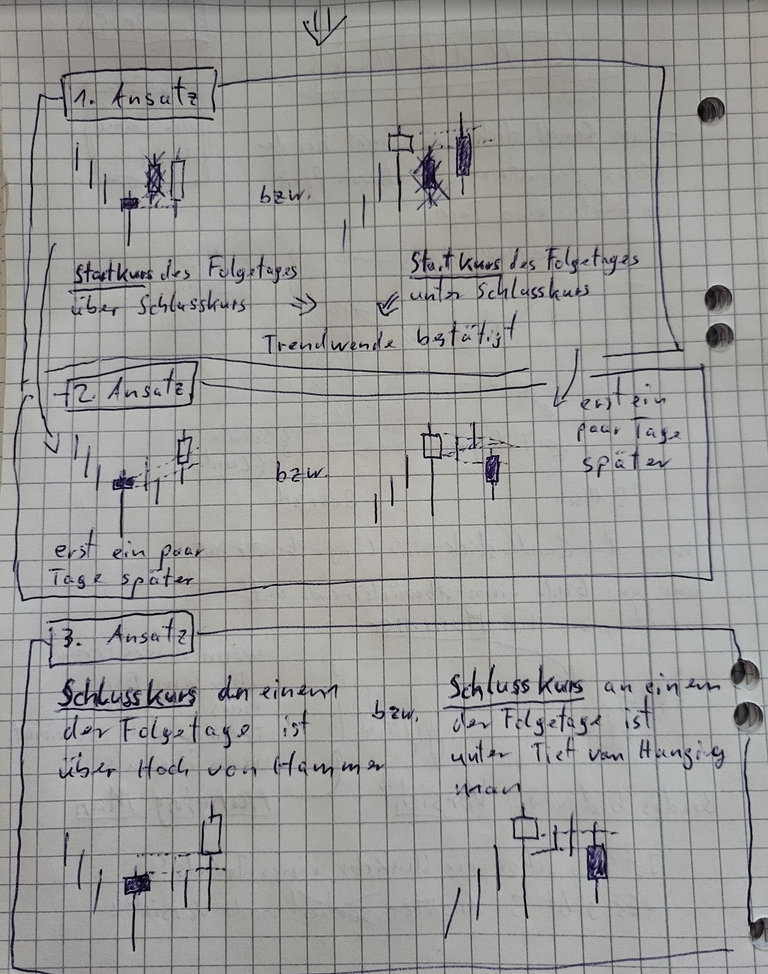 1. Ansatz
bzw.
Startkurs des Folgetages
über Schlusskurs
Startkurs des Folgetages
unter Schlusskurs
Trendwende bestätigt
2. Ansatz
erst ein
paar Tage
später
bzw.
erst ein paar
Tage später
3. Ansatz
Schlusskurs an einem
der Folgetage ist
über Hoch von Hammer
bzw.
Schlusskurs an einem
der Folgetage ist
unter Tief von Hanging
man